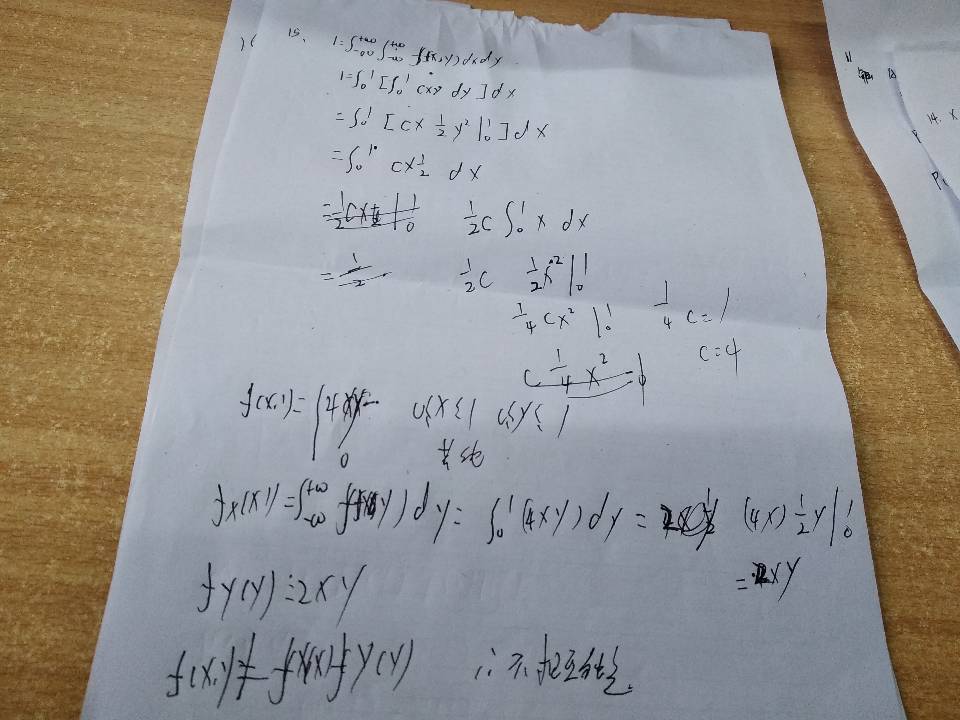 15. 1=∫₋∞⁺∞ ∫₋∞⁺∞ f(x,y)dxdy
1=∫₀¹[∫₀¹ cxy dy]dx
=∫₀¹[cx ½ y²|₀¹]dx
=∫₀¹ cx½ dx
½c ∫₀¹ x dx
½c ½x²|₀¹
¼cx²|₀¹ ¼c=1
c=4
f(x,y)={4xy 0≤x≤1 0≤y≤1
0 其他
fx(x)=∫₋∞⁺∞ f(x,y)dy=∫₀¹(4xy)dy= (4x)½y|₀¹
=2xy
fy(y)=2xy
f(x,y)≠f(x)(x)fy(y) ∴不相互独立
14. x